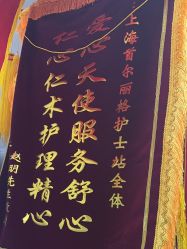 上海首尔丽格护士站全体
爱心天使服务舒心
仁心仁术护理精心